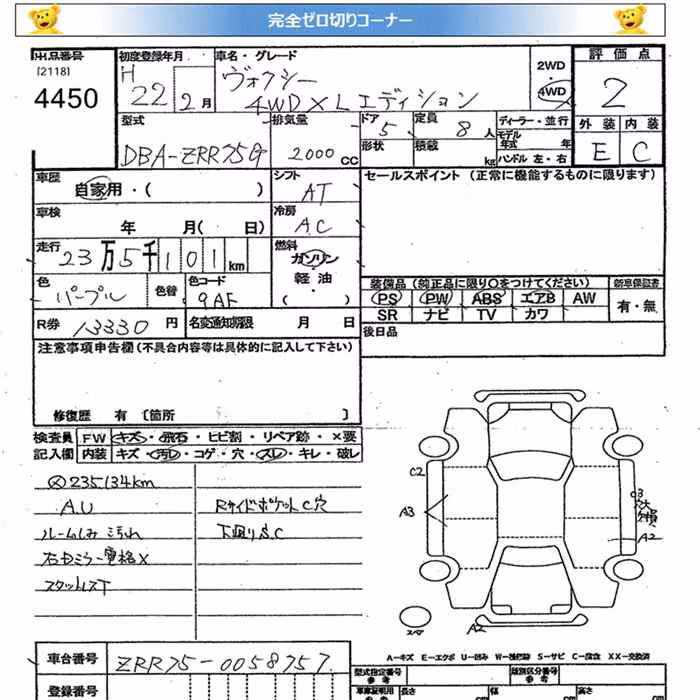 完全ゼロ切りコーナー
出品番号 初度登録年月 車名・グレード 2WD 評価点
[2118] H ヴォクシー 4WD 2
4450 22年 2月 4WD X Lエディション
型式 排気量 ドア 5 定員 8人 ディーラー・並行 外装 内装
DBA-ZRR75G 2000cc 形状 積載 kg モデル年式 年 E C
ハンドル 左・右
車歴 シフト セールスポイント (正常に機能するものに限ります)
自家用・( ) AT
車検 冷房
年 月( 日) AC
走行 燃料
23万5千101km ガソリン
軽油
・( )
色 色替 色コード 装備品 (純正品に限り○をつけてください) 新車保証書
パープル 9AF PS PW ABS エアB AW 有・無
SR ナビ TV カワ
R券 13330円 名変通知期限 月 日 後日品
注意事項申告欄 (不具合内容等は具体的に記入して下さい)
修復歴 有 〔箇所 〕
検査員 FW キズ・飛石・ヒビ割・リペア跡・×要
記入欄 内装 キズ・汚レ・コゲ・穴・スレ・キレ・破レ
235134km
A.U Rサイドポケット C穴
ルームしみ 汚れ 下廻り S.C
右ドミラー電格X
スタットレスT
C2
A3
C3
A2
スペア A2
A-キズ E-エクボ U-凹み W-補修跡 S-サビ C-腐食 XX-交換済
車台番号 ZRR75-0058757
型式指定番号 参考 類別区分番号 参考
登録番号
車庫証明用 参考 長さ cm 幅 cm 高さ cm